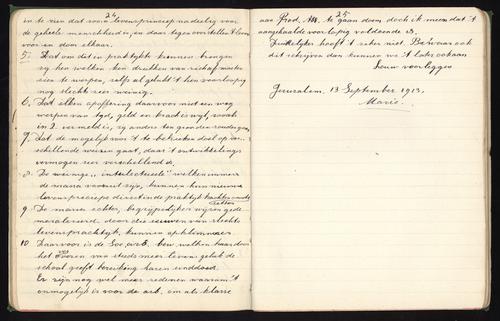 24
in te zien dat voor 't levensprincipe nadeelig voor
de geheele menschheid is, en daar tegenover stellen 't leven
voor en door elkaar.
5. Dat om dit in praktijk te kunnen brengen
zij ten volken ten
te werpen, zelfs al gelukt 't hen voorloopig
nog slechts zeer weinig.
6. Dat elken opoffering daarvoor niet een weg
werpen van tijd, geld en krachten wijl, zooals
in 2 vermeld is, zij anders ten gronde
7. Dat de mogelijkheid 't te bereiken doel op ver-
schillende wijzen gaat, daar 't ontwikkelings
vermogen zeer verschillend is.
8. De weinige "intellectueele" welken immers
de massa vooruit zijn, kunnen hun nieuwe
levensprincipe direct in de praktijk
zetten
9. De massa echter, begrijpelijker wijze
door die eeuwen van slechte
levenspraktijk, kunnen
10. Daarvoor is de Soc. arb. bew. welken haar door
het steeds meer leven gelijk de
school geeft bereiking haren einddoel.
Er zijn nog wel meer redenen waarom 't
onmogelijk is voor de arb. om als klasse
25
aan Prod. Ass. te gaan doen, doch ik meen dat 't
aangehaalde voorloopig voldoende is.
Duidelijker hoeft 't zeker niet. Bewaar ook
dit schrijven dan kunnen we 't later ook aan
Leeuw voorleggen
Jeruzalem, 13 September 1913,
Marie.